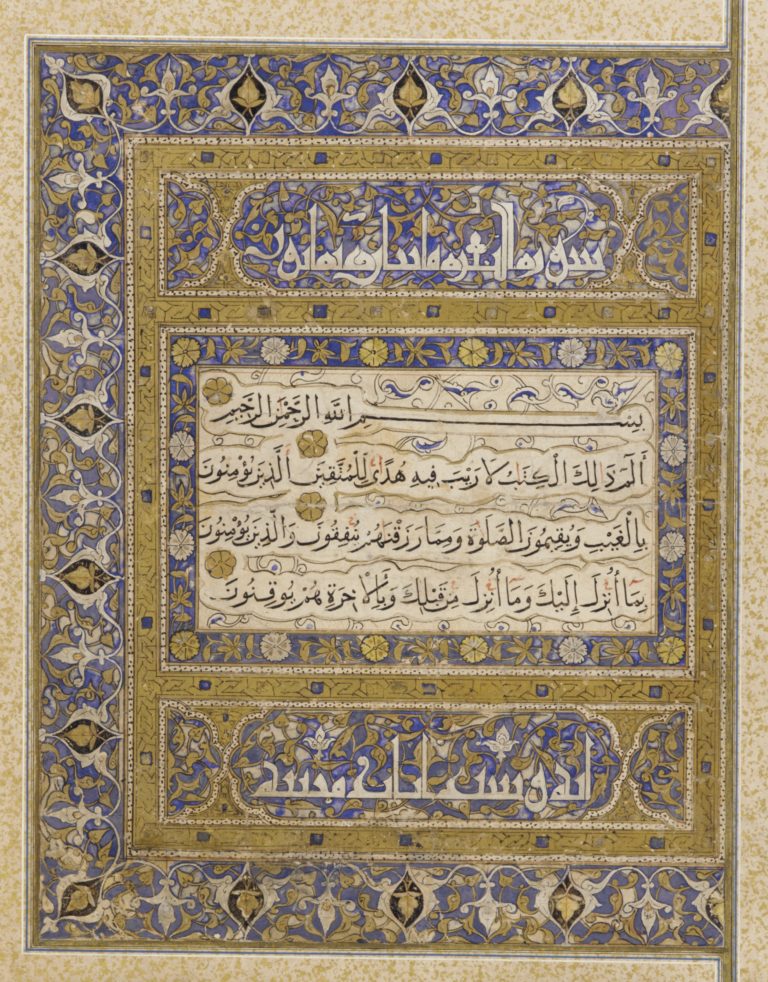 سورة البقرة مايتان وثمانون
بسم الله الرحمن الرحيم
الم ذلك الكتب لا ريب فيه هدى للمتقين الذين يؤمنون
بالغيب ويقيمون الصلوة ومما رزقنهم ينفقون والذين يؤمنون
بما أنزل إليك وما أنزل من قبلك وبالاخرة هم يوقنون
وست ايات مدنية